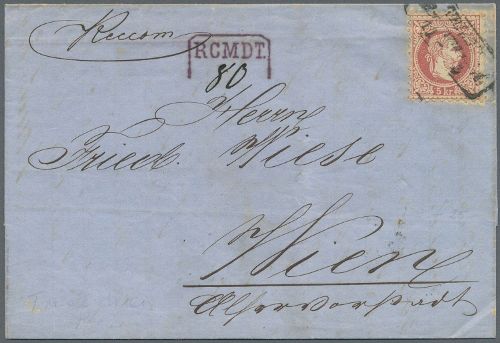 Recom
RCMDT.
80
Herrn
Fried. Wiese
Wien
Alservorstadt
5 kr